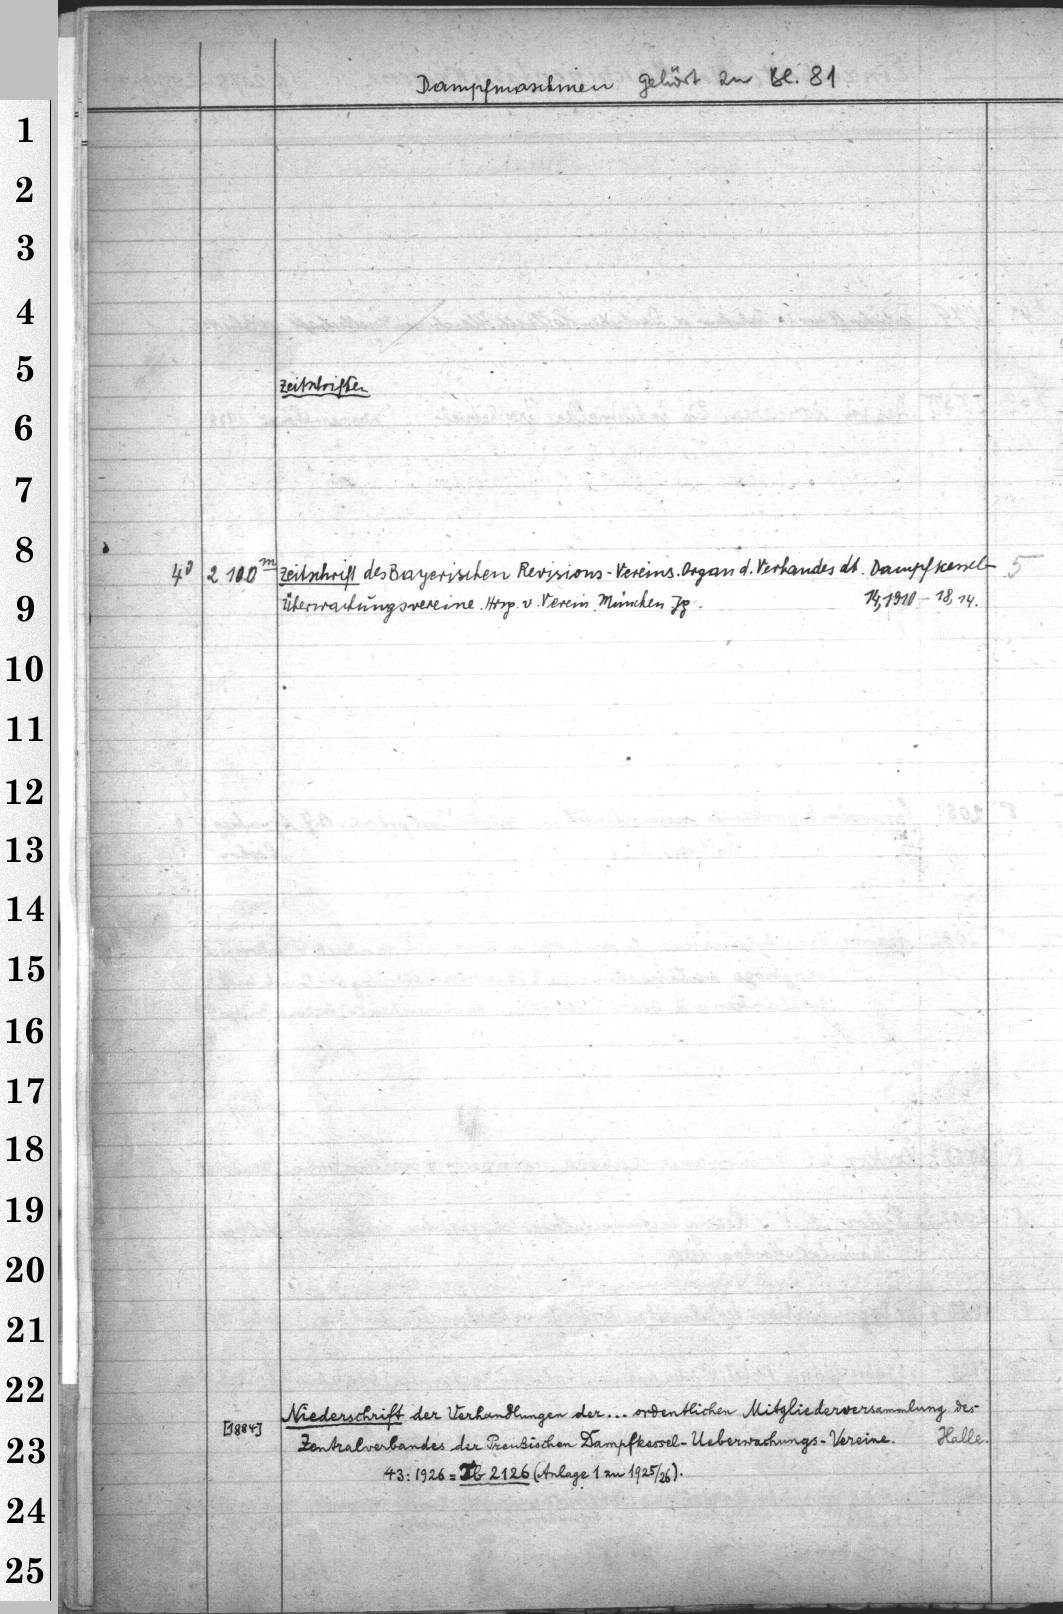 Dampfmaschinen gehört zu Bl. 81
1
2
3
4
5
Zeitschriften
6
7
8
4° 2 100 m Zeitschrift des Bayerischen Revisions-Vereins. Organ d. Verbandes dt. Dampfkessel- 5
9
Überwachungsvereine. Hrsg. v. Verein. München Jg. 14,1910 - 18,14.
10
11
12
13
14
15
16
17
18
19
20
21
22
[1884] Niederschrift der Verhandlungen der... ordentlichen Mitgliederversammlung des
23
Zentralverbandes der Preußischen Dampfkessel-Ueberwachungs-Vereine. Halle.
43: 1926 = Tb 2126 (Anlage 1 zu 1925/26).
24
25